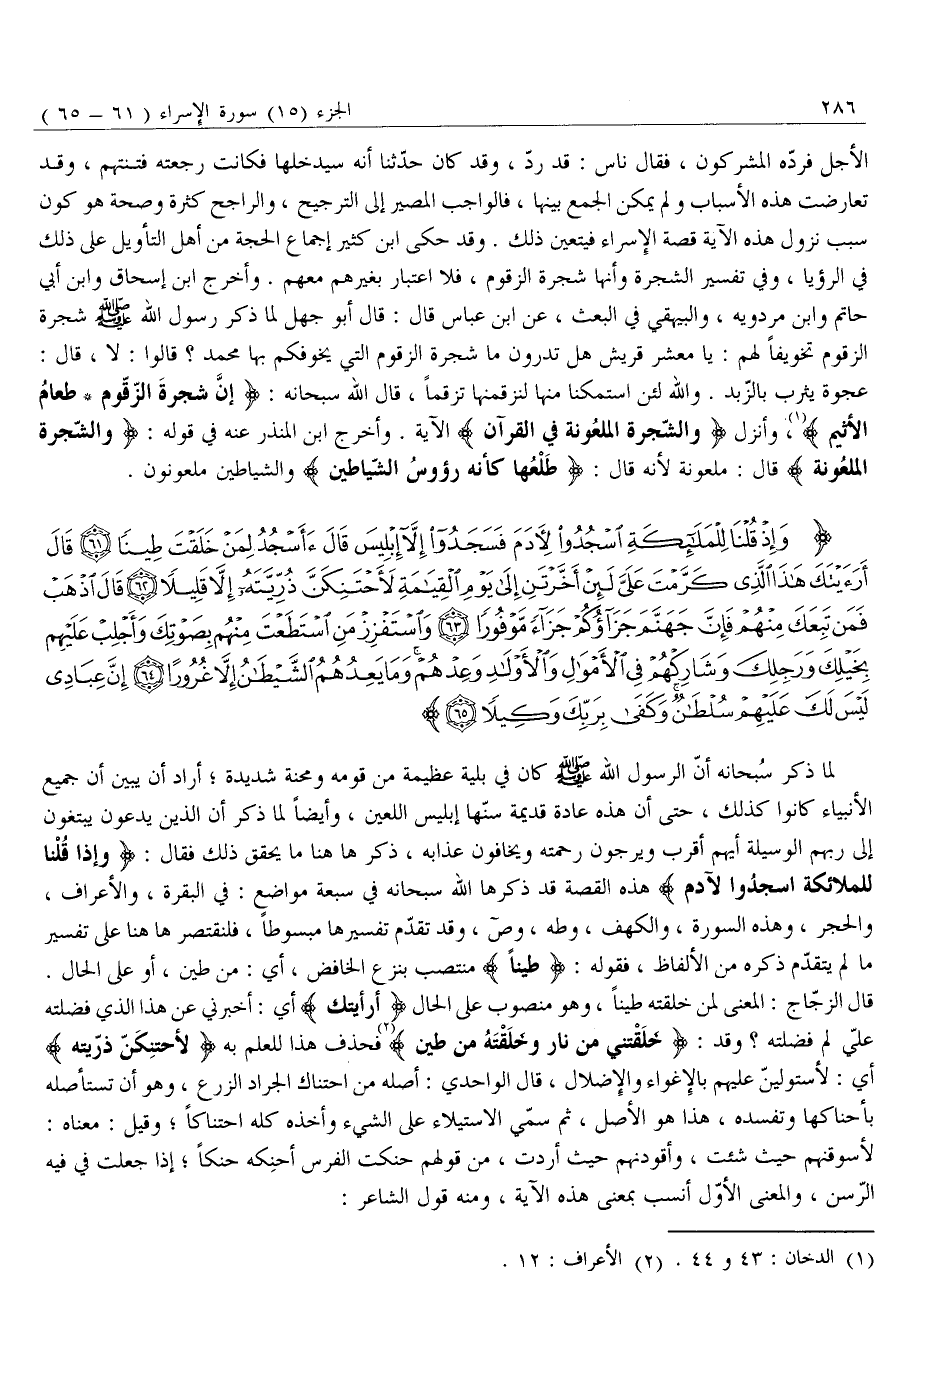 ٢٨٦ الجزء (١٥) سورة الإسراء ( ٦١ – ٦٥ )
الأجل فردّه المشركون ، فقال ناس : قد ردّ ، وقد كان حدّثنا أنه سيدخلها فكانت رجعته فتنتهم ، وقد
تعارضت هذه الأسباب ولم يمكن الجمع بينها ، فالواجب المصير إلى الترجيح ، والراجح كثرة وصحة هو كون
سبب نزول هذه الآية قصة الإسراء فيتعين ذلك . وقد حكى ابن كثير إجماع الحجة من أهل التأويل على ذلك
في الرؤيا ، وفي تفسير الشجرة وأنها شجرة الزقوم ، فلا اعتبار بغيرهم معهم . وأخرج ابن إسحاق وابن أبي
حاتم وابن مردويه ، والبيهقي في البعث ، عن ابن عباس قال : قال أبو جهل لما ذكر رسول الله ﷺ شجرة
الزقوم تخويفاً لهم : يا معشر قريش هل تدرون ما شجرة الزقوم التي يخوفكم بها محمد ؟ قالوا : لا ، قال :
عجوة يثرب بالزّبد . والله لئن استمكنا منها لنزقمنها تزقماً ، قال الله سبحانه : ﴿ إنَّ شجرةَ الزّقّوم * طعامُ
الأثيم ﴾(١)، وأنزل ﴿ والشّجرة الملعُونة في القرآن ﴾ الآية . وأخرج ابن المنذر عنه في قوله : ﴿ والشّجرة
الملعُونة ﴾ قال : ملعونة لأنه قال : ﴿ طَلْعُها كأنه رؤوسُ الشّياطين ﴾ والشياطين ملعونون .
﴿ وَإِذْ قُلْنَا لِلْمَلَٰٓئِكَةِ ٱسْجُدُوا۟ لِـَٔادَمَ فَسَجَدُوٓا۟ إِلَّآ إِبْلِيسَ قَالَ ءَأَسْجُدُ لِمَنْ خَلَقْتَ طِينًا ٦١ قَالَ
أَرَءَيْتَكَ هَٰذَا ٱلَّذِى كَرَّمْتَ عَلَىَّ لَئِنْ أَخَّرْتَنِ إِلَىٰ يَوْمِ ٱلْقِيَٰمَةِ لَأَحْتَنِكَنَّ ذُرِّيَّتَهُۥٓ إِلَّا قَلِيلًا ٦٢ قَالَ ٱذْهَبْ
فَمَن تَبِعَكَ مِنْهُمْ فَإِنَّ جَهَنَّمَ جَزَآؤُكُمْ جَزَآءً مَّوْفُورًا ٦٣ وَٱسْتَفْزِزْ مَنِ ٱسْتَطَعْتَ مِنْهُم بِصَوْتِكَ وَأَجْلِبْ عَلَيْهِم
بِخَيْلِكَ وَرَجِلِكَ وَشَارِكْهُمْ فِى ٱلْأَمْوَٰلِ وَٱلْأَوْلَٰدِ وَعِدْهُمْ ۚ وَمَا يَعِدُهُمُ ٱلشَّيْطَٰنُ إِلَّا غُرُورًا ٦٤ إِنَّ عِبَادِى
لَيْسَ لَكَ عَلَيْهِمْ سُلْطَٰنٌ ۚ وَكَفَىٰ بِرَبِّكَ وَكِيلًا ٦٥ ﴾
لما ذكر سُبحانه أنّ الرسول الله ﷺ كان في بلية عظيمة من قومه ومحنة شديدة ؛ أراد أن يبين أن جميع
الأنبياء كانوا كذلك ، حتى أن هذه عادة قديمة سنّها إبليس اللعين ، وأيضاً لما ذكر أن الذين يدعون يبتغون
إلى ربهم الوسيلة أيهم أقرب ويرجون رحمته ويخافون عذابه ، ذكر ها هنا ما يحقق ذلك فقال : ﴿ وإذا قُلْنا
للملائكة اسجدُوا لآدم ﴾ هذه القصة قد ذكرها الله سبحانه في سبعة مواضع : في البقرة ، والأعراف ،
والحجر ، وهذه السورة ، والكهف ، وطه ، وصّ ، وقد تقدّم تفسيرها مبسوطاً ، فلنقتصر ها هنا على تفسير
ما لم يتقدّم ذكره من الألفاظ ، فقوله : ﴿ طيناً ﴾ منتصب بنزع الخافض ، أي : من طين ، أو على الحال .
قال الزجّاج : المعنى لمن خلقته طيناً ، وهو منصوب على الحال ﴿ أرأيتك ﴾ أي : أخبرني عن هذا الذي فضلته
عليّ لم فضلته ؟ وقد : ﴿ خَلَقْتني من نار وخَلَقْتَهُ من طين ﴾(٢) فحذف هذا للعلم به ﴿ لأحتنِكَنّ ذرّيته ﴾
أي : لأستولينّ عليهم بالإغواء والإضلال ، قال الواحدي : أصله من احتناك الجراد الزرع ، وهو أن تستأصله
بأحناكها وتفسده ، هذا هو الأصل ، ثم سمّي الاستيلاء على الشيء وأخذه كله احتناكاً ؛ وقيل : معناه :
لأسوقنهم حيث شئت ، وأقودنهم حيث أردت ، من قولهم حنكت الفرس أحنِكه حنكاً ؛ إذا جعلت في فيه
الرّسن ، والمعنى الأوّل أنسب بمعنى هذه الآية ، ومنه قول الشاعر :
(١) الدخان : ٤٣ و ٤٤ . (٢) الأعراف : ١٢ .